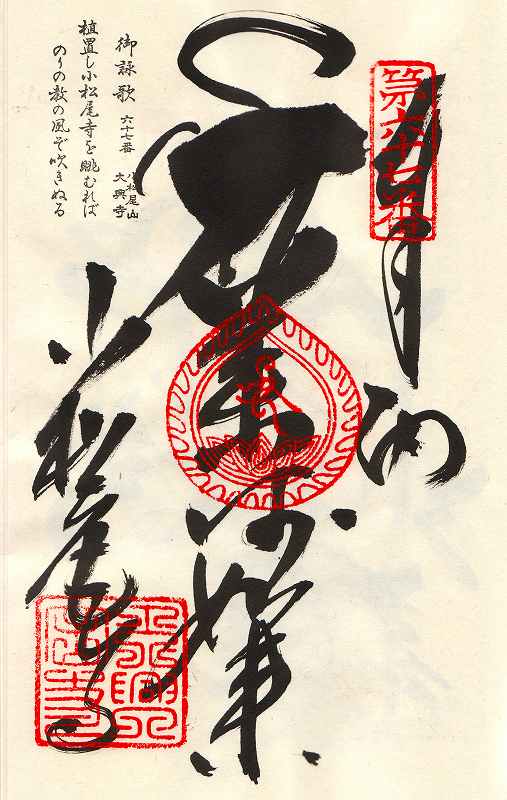 第六十七番
奉納
薬師如来
小松尾寺
御詠歌 六十七番 小松尾山 大興寺
植置し小松尾寺を眺むれば
のりの教の風ぞ吹きぬる